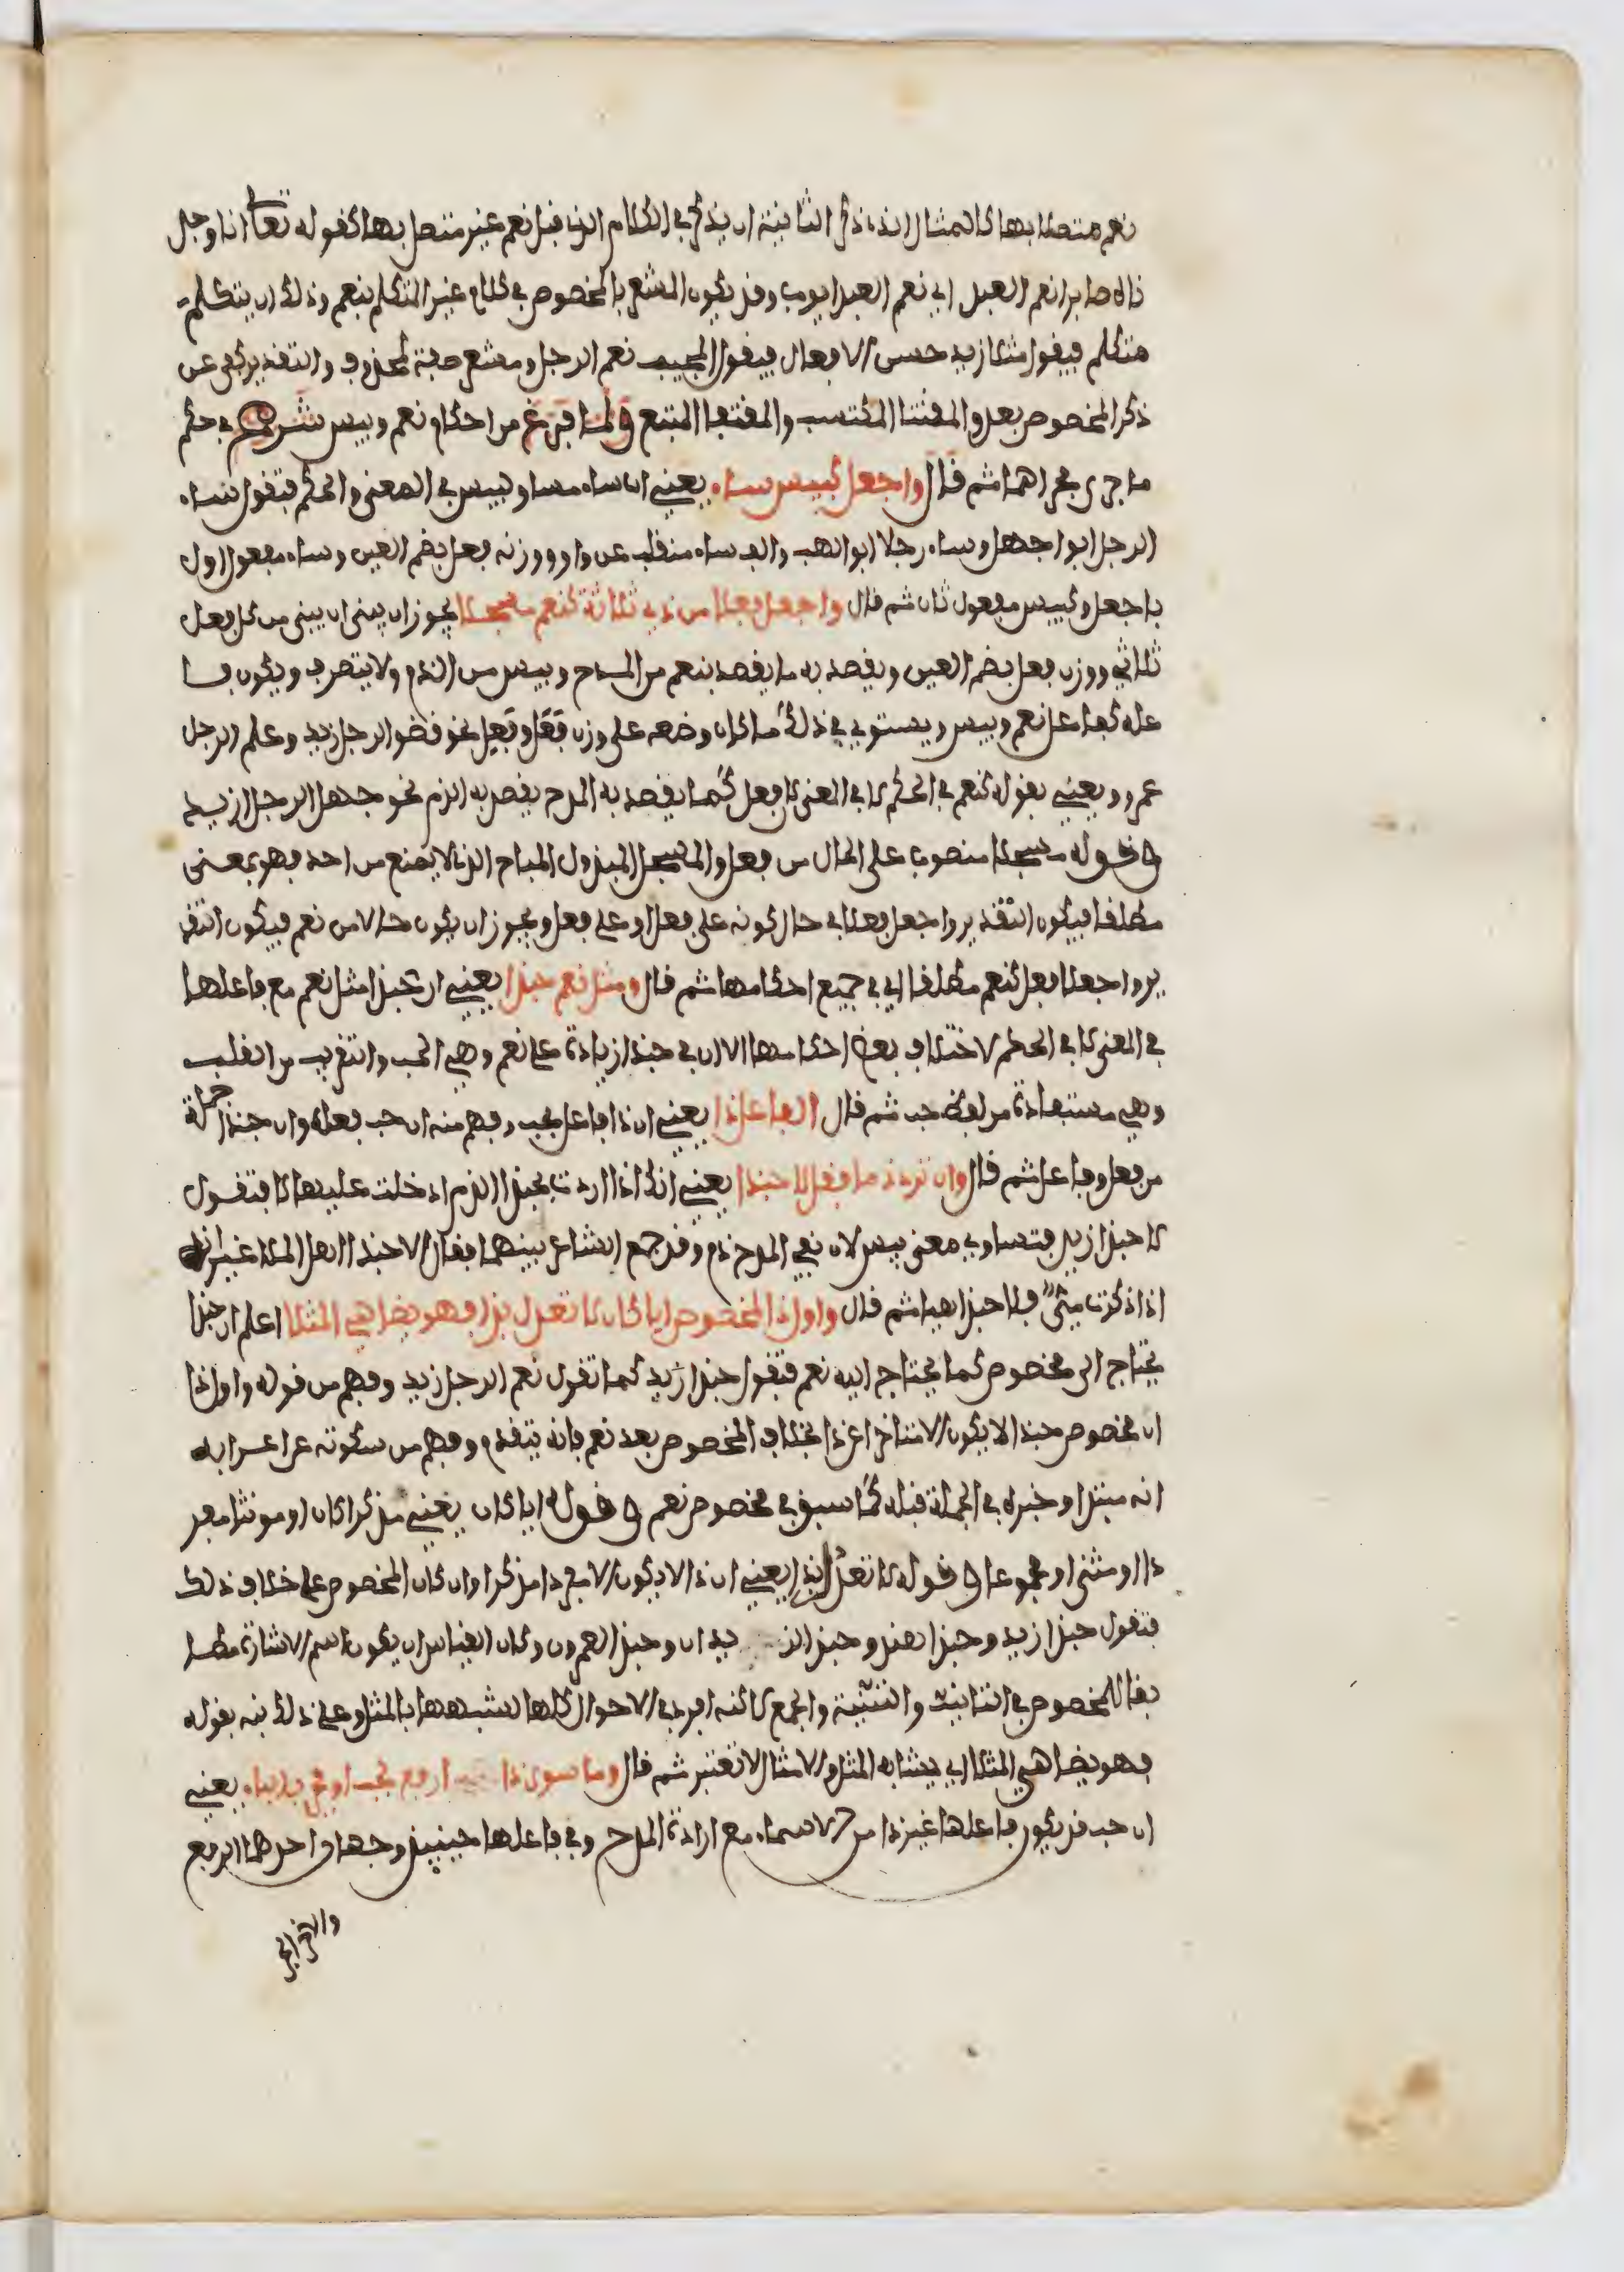 نعم متصلا بها كالمثال الذي ذكر الثانية ان يذكر في الكلام الذي قبل نعم غير متصل بها كقوله تعالى انا وجد
ناه صابرا نعم العبد اي نعم العبد ايوب وقد يكون المشعر بالمخصوص في كلام غير المتكلم بنعم وذلك ان يتكلم
متكلم فيقول مثلا زيد حسن الافعال فيقول المجيب نعم الرجل ومشعر صفة لمحذوف والتقدير كفى عن
ذكر المخصوص بعد والمقتنا المكتسب والمقتفا المتبع ولما فرغ من احكام نعم وبيس شرع في حكم
ما جرى مجراهما ثم قال واجعل كبيس ساء يعني ان ساء مساو لبيس في المعنى والحكم فتقول ساء
الرجل ابوا جهل وساء رجلا ابوا لهب والف ساء منقلب عن واو ووزنه فعل بضم العين وساء مفعول اول
باجعل وكبيس مفعول ثان ثم قال واجعل فعلا من ذي ثلاثة كنعم مسجلا يجوز ان يبنى ان يبنى من كل فعل
ثلاثي ووزن فعل بضم العين ويقصد به ما يقصد بنعم من المدح وبيس من الذم ولا يتصرف ويكون فا
عله كفاعل نعم وبيس ويستوي في ذلك ما كان وضعه على وزن فعل وفعل نحو فضو الرجل زيد وعلم الرجل
عمرو ويعني بقوله كنعم في الحكم لا في المعنى لا فعل كما يقصد به المدح يقصد به الذم نحو جهل الرجل زيد
وقوله مسجلا منصوب على الحال من فعل والمسجل المبذول المباح الذي لا يمنع من احد فهو بمعنى
مطلقا فيكون التقدير واجعل فعلا في حال كونه على فعل او على فعل ويجوز ان يكون حالا من نعم فيكون التقد
ير واجعلا فعل كنعم مطلقا اي في جميع احكامها ثم قال ومثل نعم حبذا يعني ان حبذا مثل نعم مع فاعلها
في المعنى لا في الحكم لاختلاف بعض احكامها الا ان في حبذا زيادة على نعم وهي الحب والتقريب من القلب
وهي مستفادة من لفظ حب ثم قال الفاعل ذا يعني ان ذا فاعل بحب وفهم منه ان حب فعل وان حبذا جملة
من فعل وفاعل ثم قال وان ترد ذما فقل لا حبذا يعني انك اذا اردت بحبذا الذم ادخلت عليها لا فتقول
لا حبذا زيد فتساوي معنى بيس لان نفي المدح ذم وقد جمع الشاعر بينهما فقال الا حبذا اهل الملا غير انه
اذا ذكرت مي فلا حبذا هيا ثم قال واول ذا المخصوص ايا كان لا تعدل بذا فهو يضاهي المثلا اعلم ان حبذا
يحتاج الى مخصوص كما يحتاج اليه نعم فتقول حبذا زيد كما تقول نعم الرجل زيد وفهم من قوله واول ذا
ان مخصوص حبذا لا يكون الا متاخرا عن ذا بخلاف المخصوص بعد نعم فانه يتقدم وفهم من سكوته عن اعرابه
انه مبتدا وخبره في الجملة قبله كما سبق في مخصوص نعم وقوله ايا كان يعني مذكرا كان او مونثا مفر
دا او مثنى او مجموعا وقوله لا تعدل بذا يعني ان ذا لا يكون الا مفردا مذكرا وان كان المخصوص على خلاف ذلك
فتقول حبذا زيد وحبذا هند وحبذا الزيدان وحبذا العمرون وكان القياس ان يكون اسم الاشارة مطا
بقا للمخصوص في التانيث والتثنية والجمع لاكنه افرد في الاحوال كلها لشبهها بالمثل وعلى ذلك نبه بقوله
فهو يضاهي المثلا اي يشابه المثل والامثال لا تغير ثم قال وما سوى ذا ارفع بحب او فجر بالباء يعني
ان حب قد يكون فاعلها غير ذا من الاسماء مع ارادة المدح وفي فاعلها حينيذ وجهان احدهما الرفع
والاخر الجر